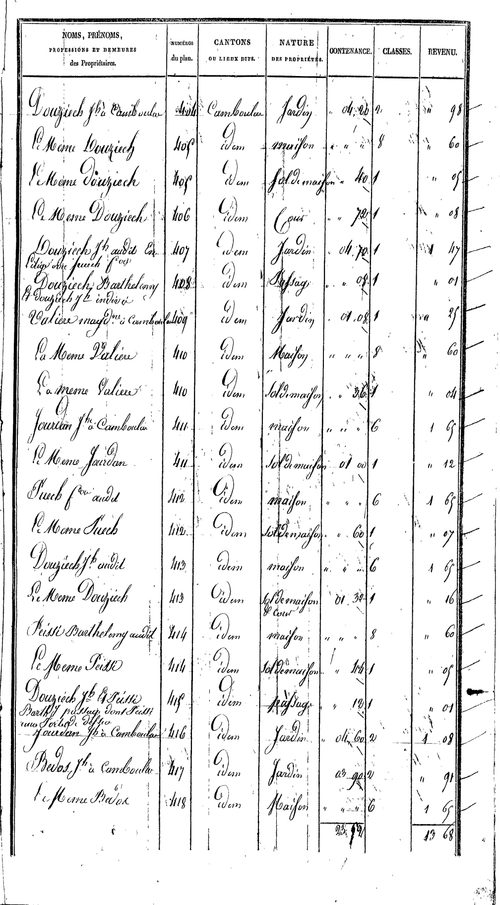 NOMS, PRÉNOMS, PROFESSIONS ET DEMEURES des Propriétaires. NUMÉROS du plan. CANTONS OU LIEUX DITS. NATURE DES PROPRIÉTÉS. CONTENANCE. CLASSES. REVENU.
Douziech Jh à Camboulan 404 Camboulan Jardin 04 20 2 " 98
Le Meme Douziech 405 idem maison " " " 8 " 60
Le Meme Douziech 405 idem Sol de maison " 40 1 " 05
Le Meme Douziech 406 idem Cour " 72 1 " 08
Douziech Jh audit 407 idem Jardin 04 70 1 1 47
Douziech, Barthelemy 408 idem Passage " 08 1 " 01
et Douziech Jh indivis
Valiere à Camboulan 409 idem Jardin 01 08 1 " 25
La Meme Valiere 410 idem Maison " " " 8 " 60
La meme Valiere 410 idem Sol de maison " 36 1 " 04
Jourdan Jh à Camboulan 411 idem maison " " " 6 1 65
Le Meme Jourdan 411 idem Sol de maison 01 00 1 " 12
Puech audit 412 idem maison " " " 6 1 65
Le Meme Puech 412 idem Sol de maison " 60 1 " 07
Douziech Jh audit 413 idem maison " " " 6 1 65
Le Meme Douziech 413 idem Sol de maison & Cour 01 32 1 " 16
Barthelemy audit 414 idem maison " " " 8 " 60
Le Meme 414 idem Sol de maison " 44 1 " 05
Douziech Jh & 415 idem passage " 12 1 " 01
Jourdan Jh à Camboulan 416 idem Jardin 04 60 2 1 08
Bedos, Jh à Camboulan 417 idem Jardin 03 90 2 " 91
Le Meme Bedos 418 idem Maison " " " 6 1 65
23 52 13 68